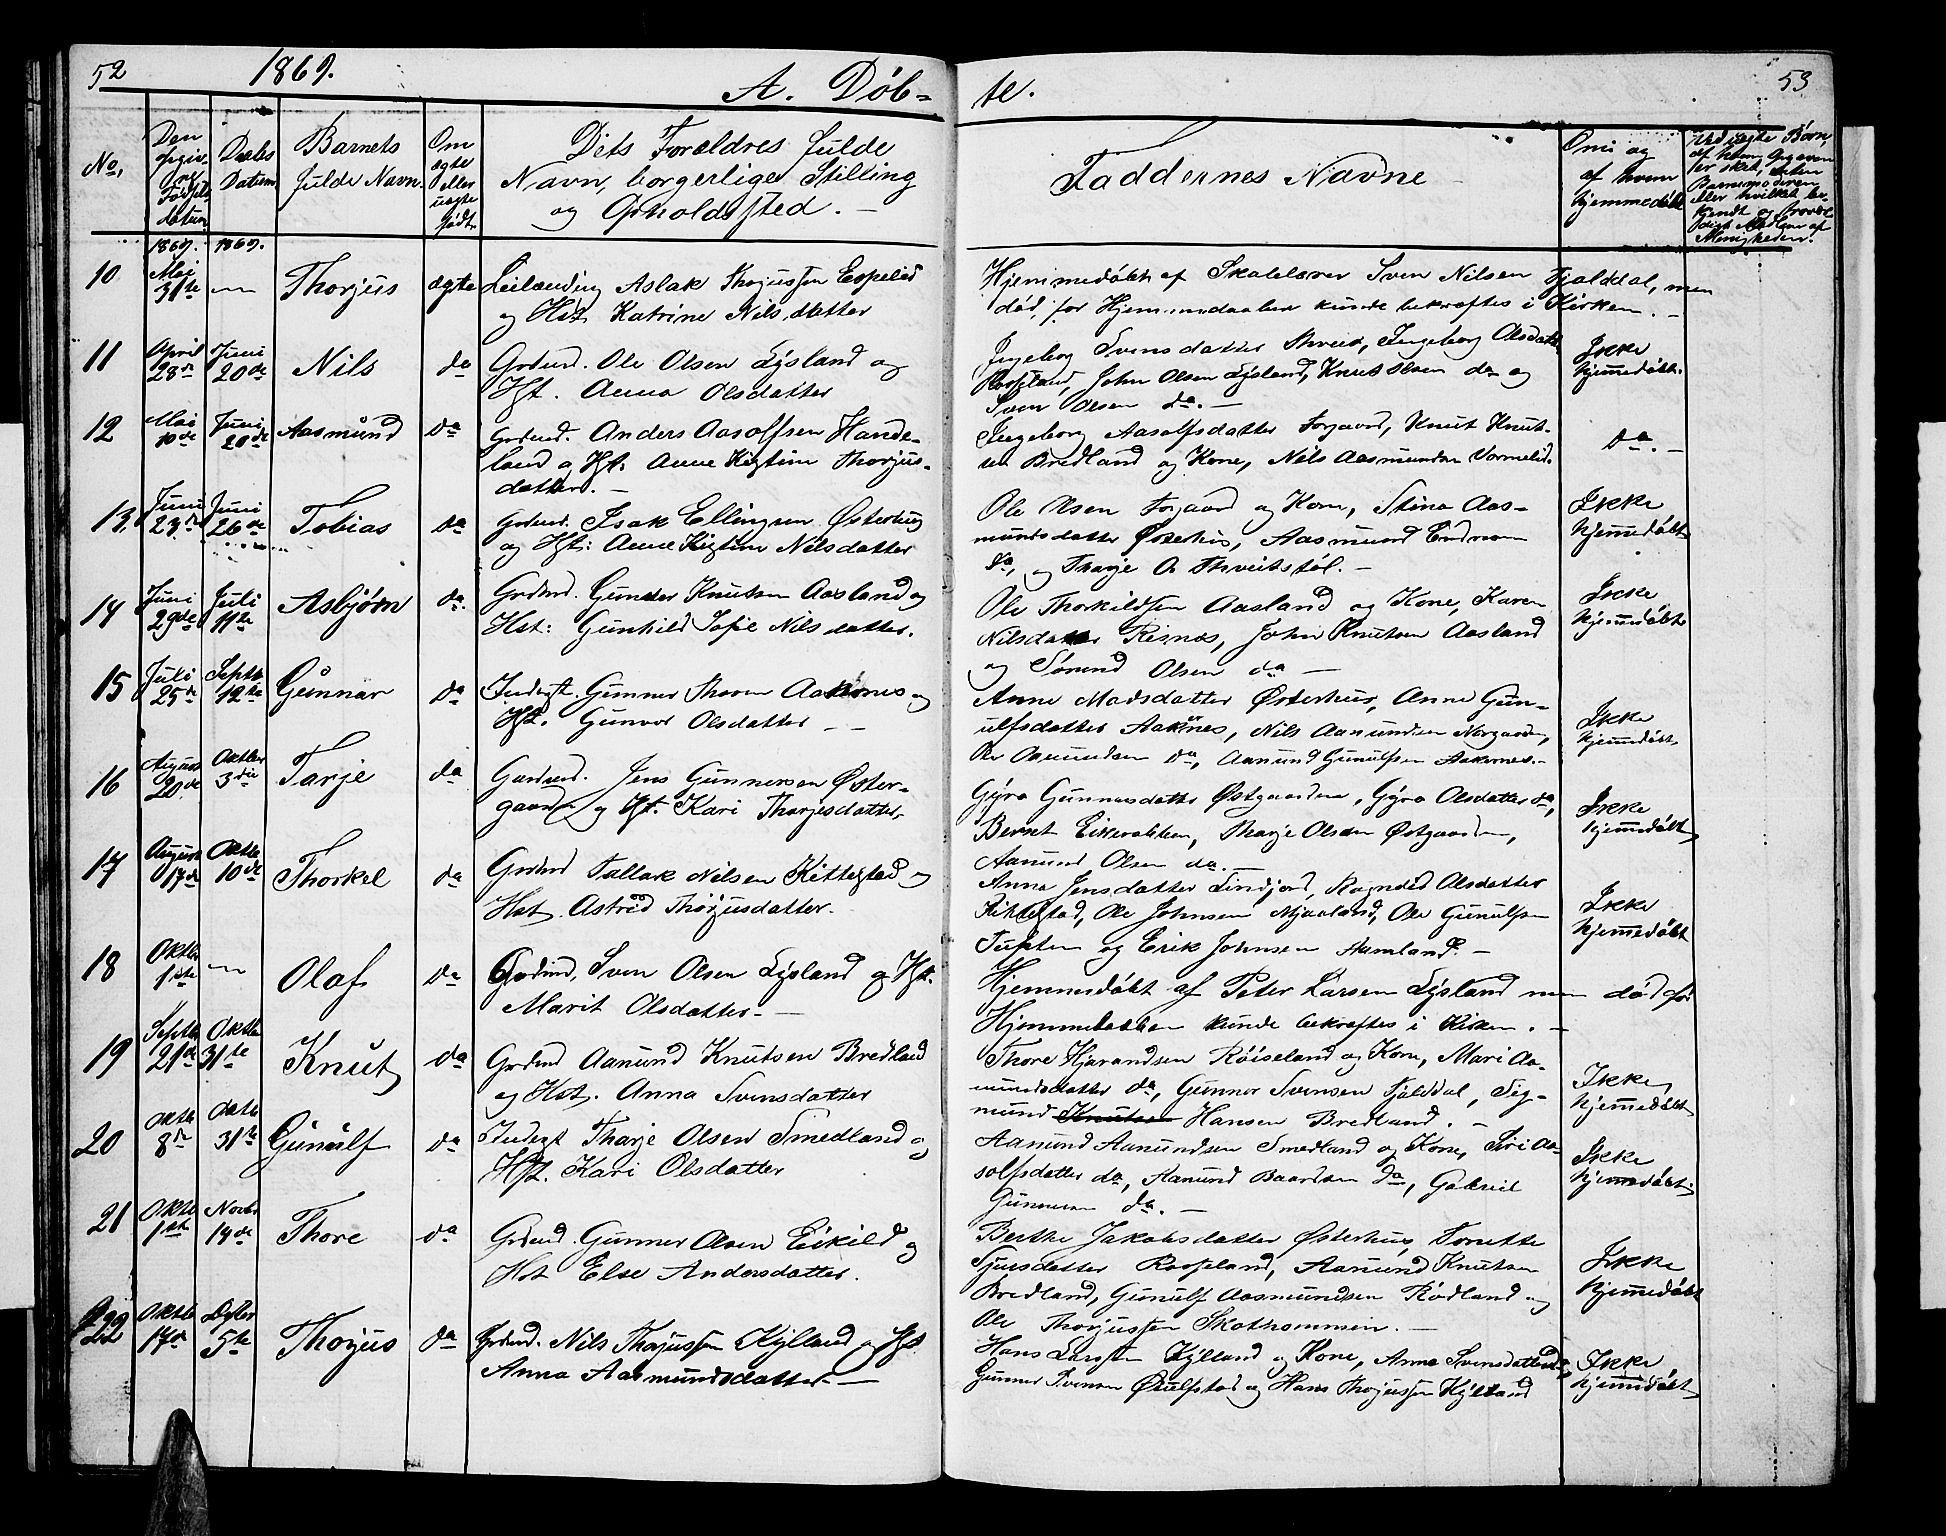 52
1869.
A. Døb-
te.
53
No.
Den
Opgiv.
og
Fødsels
datum
Daabs
Datum
Barnets
fulde Navn
Om
ægte
eller
uægte
født
Dets Forældres fulde
Navn, borgerlige Stilling
og Opholdssted. —
Faddernes Navne —
Om og
af hvem
hjemmedøbt
Ved uægte Børn,
Barnemoderen
eller hvilket be-
kjendt og
Menigheden.
1869. 1869.
10 Mai 31te — Thorjus ægte Leilænding Aslak Thorjussen Espelid
og Hst. Katrine Nilsdatter
Hjemmedøbt af Skolelærer Sven Nilsen Fjalddal, men
død, før Hjemmedaaben kunde bekræftes i Kirken. —
11 April 28de Juni 20de Nils do Grdmd. Ole Olsen Lysland og
Hst. Anna Olsdatter
Ingeborg Svensdatter Ingeborg Olsdatter
Røiseland, John Olsen Lysland, Knut Olsen do og
Sven Olsen do. —
Ikke
hjemmedøbt.
12 Mai 10de Juni 20de Aasmund do Grdmd. Anders Aasolfsen Hande-
land og Hst. Anne Kistine Thorjus-
datter. —
Ingeborg Aasolfsdatter Torgaard, Knut Knut-
sen Bredland og Kone, Nils Aasmundsen Varmelid.
do. —
13. Juni 23de Juni 26de Tobias do Grdmd. Isak Ellingsen Østerhus
og Hst: Anne Kistine Nilsdatter
Ole Olsen Torgaard og Kone, Stina Aas-
mundsdatter Østerhus, Aasmund
do, og Tharje O. Thveitstøl. —
Ikke
hjemmedøbt
14 Juni 29de Juli 11te Asbjørn do. Grdmd. Gunder Knutsen Aasland og
Hst: Gunhild Sofie Nilsdatter.
Ole Thorkildsen Aasland og Kone, Karen
Nilsdatter Risnæs, John Knutsen Aasland
og Sørend Olsen do —
Ikke
hjemmedøbt
15 Juli 25de Septb 12te Gunnar do Inderst. Gunner Aakernes og
Hst. Gunvor Olsdatter — —
Anne Madsdatter Østerhus, Anne Gun-
ulfsdatter Aaknes, Nils Aanundsen Norgaarden,
Ole Aanundsen do, Aanund Gunulfsen Aakernes. —
Ikke
hjemmedøbt
16 August 20de Oktber 3die Tarje do Gardmd. Jens Gunnersen Øster-
gaard og Hst. Kari Thorjesdatter,
Gyro Gunnarsdatter Østgaarden, Gyro Olsdatter do,
Bernt Eikerakken, Tharje Olsen Østgaarden,
Aanund Olsen do. —
Ikke
hjemmedøbt
17 August 17de Oktbr 10de Thorkel do Grdmd Tallak Nilsen Kittelstad og
Hst. Astrid Thorjusdatter.
Anna Jensdatter Lindjord, Ragnild Olsdatter
Kittelstad, Ole Johnsen Mjaaland, Ole Gunulfsen
Tuften og Erik Johnsen Aamland. —
Ikke
hjemmedøbt
18 Oktber 1ste — Olaf do Grdmd, Sven Olsen Lysland og Hst.
Marit Olsdatter. —
Hjemmedøbt af Peter Larsen Lysland men død før
Hjemmedaaben kunde bekræftes i Kirken. —
19 Septbr 21de Oktbr 31te Knut do Grdmd Aanund Knutsen Bredland
og Hst. Anna Svensdatter
Thore Hjarandsen Røiseland og Kone, Mari Aa-
nundsdatter do, Gunner Svensen Fjalddal, Sig-
mund Knutsen Hansen Bredland. —
Ikke
hjemmedøbt
20 Oktb 8de Oktb 31te Gunulf do Inderst Tharje Olsen Smedland og
Hst. Kari Olsdatter
Aanund Aanundsen Smedland og Kone, Siri Aa-
solfsdatter do, Aanund Baardsen do, Gabriel
Gunnersen do. —
Ikke
hjemmedøbt
21 Oktb 1ste Novbr 14de Thore do Grdmd. Gunner Olsen Eikild og
Hst Else Andersdatter.
Berthe Jakobsdatter Østerhus, Tonette
Sjursdatter Røiseland, Aanund Knutsen
Bredland, Gunulf Aasmundsen Rødland og
Ole Thorjussen Skathommen. —
Ikke
hjemmedøbt
22 Oktb 17de Dcbr 5te Thorjus do Grdmd. Nils Thorjussen Kylland og Hst
Anna Aasmundsdatter. —
Hans Larssen Kylland og Kone, Anne Svensdatter do,
Gunner Svensen og Hans Thorjussen Kylland
Ikke
hjemmedøbt